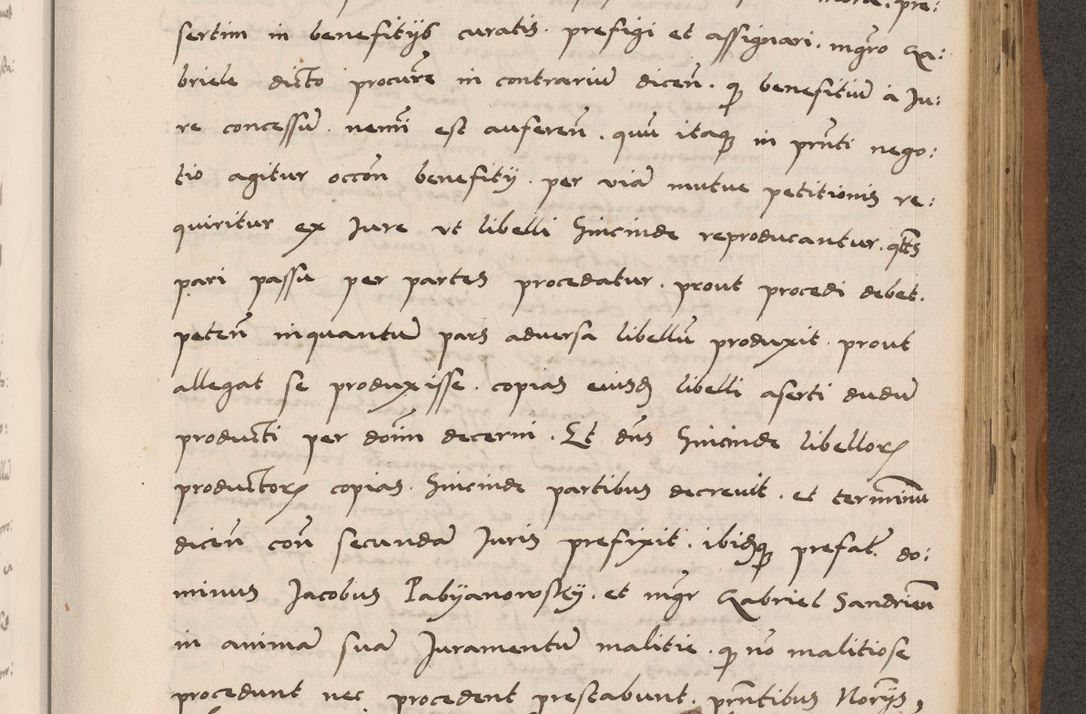 sertim in benefitijs curatis. prefigi et assignari. mgro Ga:
briele dicto procure in contrariu dicen. q benefitiu a Ju:
re concessu. nemi est auferen. quu itaq in pnti nego:
tio agitur occon benefitij. per via mutue petitionis re:
quiritur ex Jure ut libelli hincinde reproducantur.
pari passu per partes procedatur. prout procedi debet.
peten inquantu pars adversa libellu produxit. prout
allegat se produxisse. copias eiusd libelli aserti dudu
producti per doim decerni. Et dns hincinde libellor
productor copias. hincinde partibus decrevit. et terminu
dicen con secunda Juris prefixit. ibidq prefat. do:
minus Jacobus Pabyanowsky. et mgr Gabriel Sandrien
in anima sua Juramentu malitie. q no malitiose
procedunt nec procedent prestabunt. pntibus Norijs,